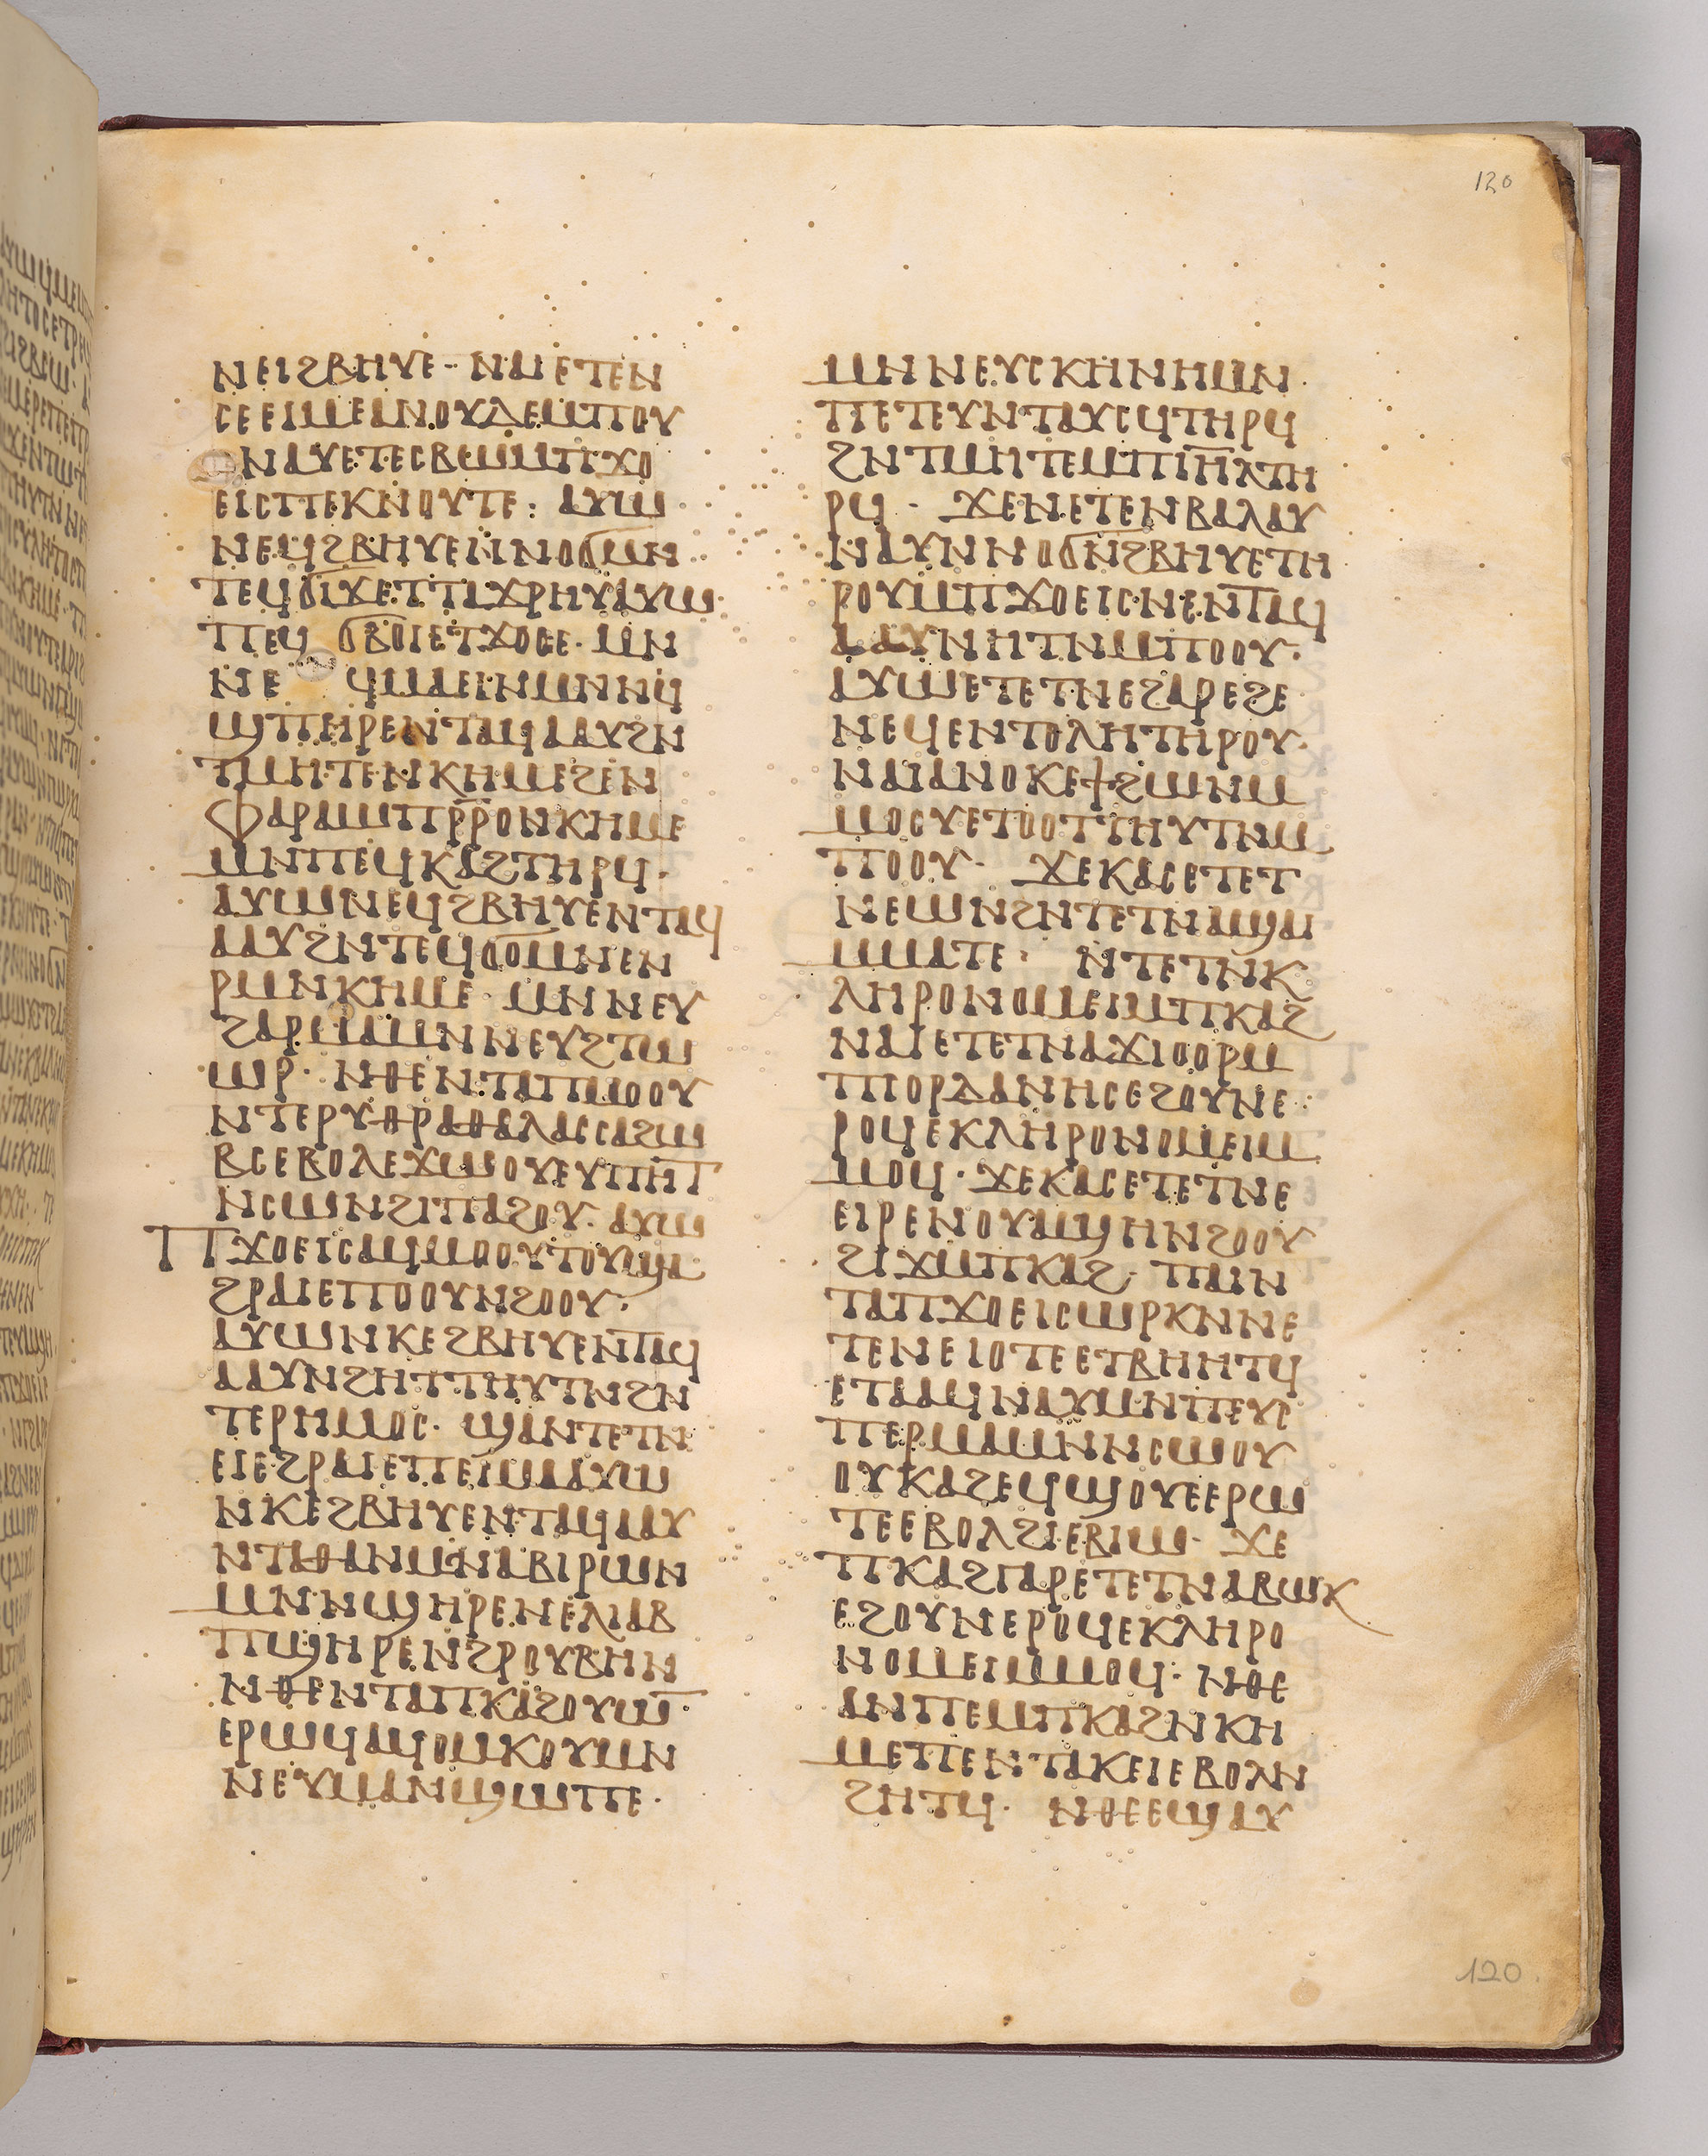 120
ⲛⲉⲓϩⲃⲏⲩⲉ· ⲛⲁⲓ ⲉⲧⲉⲛ
ⲥⲉⲉⲓⲙⲉⲁⲛⲟⲩⲇⲉⲙⲡⲟⲩ
ⲛⲁⲩⲉⲧⲉⲥⲃⲱⲙⲡϫⲟ
ⲉⲓⲥⲡⲉⲕⲛⲟⲩⲧⲉ: ⲁⲩⲱ
ⲛⲉϥϩⲃⲏⲩⲉⲛⲛⲟϭⲙⲛ
ⲧⲉϥϭⲓϫⲉⲧⲧⲁϫⲣⲏⲩⲁⲩⲱ
ⲡⲉϥ ϭⲃⲟⲓⲉⲧϫⲟⲥⲉ· ⲙⲛ
ⲛⲉ ϥⲙⲁⲉⲓⲛⲙⲛⲛϥ
ϣⲡⲏⲣⲉⲛⲧⲁϥⲁⲁⲩϩⲛ
ⲧⲙⲏⲧⲉⲛⲕⲏⲙⲉϩⲉⲛ
ⲫⲁⲣⲁⲱⲡⲣⲣⲟⲛⲕⲏⲙⲉ
ⲙⲛⲡⲉϥⲕⲁϩⲧⲏⲣϥ·
ⲁⲩⲱⲛⲉϥϩⲃⲏⲩⲉⲛⲧⲁϥ
ⲁⲁⲩϩⲛⲧⲉϥϭⲟⲙⲛⲉⲛ
ⲣⲙⲛⲕⲏⲙⲉ· ⲙⲛⲛⲉⲩ
ϩⲁⲣⲙⲁⲙⲛⲛⲉⲩϩⲧⲱ
ⲱⲣ· ⲛⲑⲉⲛⲧⲁⲡⲙⲟⲟⲩ
ⲛⲧⲉⲣⲩⲑⲣⲁⲑⲁⲗⲁⲥⲥⲁϩⲱ
ⲃⲥⲉⲃⲟⲗⲉϫⲱⲟⲩⲉⲩⲡⲏⲧ
ⲛⲥⲱⲛϩⲓⲡⲁϩⲟⲩ· ⲁⲩⲱ
ⲡϫⲟⲉⲓⲥⲁϥⲙⲟⲟⲩⲧⲟⲩϣⲁ
ϩⲣⲁⲓⲉⲡⲟⲟⲩⲛϩⲟⲟⲩ·
ⲁⲩⲱⲛⲕⲉϩⲃⲏⲩⲉⲛⲧⲁϥ
ⲁⲁⲩⲛϩⲏⲧⲧⲏⲩⲧⲛϩⲛ
ⲧⲉⲣⲏⲙⲟⲥ· ϣⲁⲛⲧⲉⲧⲛ
ⲉⲓⲉϩⲣⲁⲓⲉⲡⲉⲓⲙⲁⲁⲩⲱ
ⲛⲕⲉϩⲃⲏⲩⲉⲛⲧⲁϥⲁⲁⲩ
ⲛⲇⲁⲑⲁⲛⲙⲛⲁⲃⲓⲣⲱⲛ
ⲙⲛⲛϣⲏⲣⲉⲛⲉⲗⲓⲁⲃ
ⲡϣⲏⲣⲉⲛϩⲣⲟⲩⲃⲏⲛ
ⲛⲑⲉⲛⲧⲁⲡⲕⲁϩⲟⲩⲱ·
ⲉⲣⲱϥⲁϥⲟⲙⲕⲟⲩⲙⲛ
ⲛⲉⲩⲙⲁⲛϣⲱⲡⲉ·
ⲙⲛⲛⲉⲩⲥⲕⲏⲛⲏⲙⲛ
ⲡⲉⲧⲉⲩⲛⲧⲁⲩⲥϥⲧⲏⲣϥ
ϩⲛⲧⲙⲏⲧⲉⲙⲡⲓⲏⲗⲧⲏ
ⲣϥ· ϫⲉⲛⲉⲧⲉⲛⲃⲁⲗⲁⲩ
ⲛⲁⲩⲛⲛⲟϭⲛϩⲃⲏⲩⲉⲧⲏ
ⲣⲟⲩⲙⲡϫⲟⲉⲓⲥⲛⲉⲛⲧⲁϥ
ⲁⲁⲩⲛⲏⲧⲛⲙⲡⲟⲟⲩ·
ⲁⲩⲱⲉⲧⲉⲧⲛⲉϩⲁⲣⲉϩⲉ
ⲛⲉϥⲉⲛⲧⲟⲗⲏⲧⲏⲣⲟⲩ·
ⲛⲁⲓⲁⲛⲟⲕⲉϯϩⲱⲛⲙ
ⲙⲟⲥⲩⲉⲧⲟⲟⲧⲧⲏⲩⲧⲛⲙ
ⲡⲟⲟⲩ· ϫⲉⲕⲁⲥⲉⲧⲉⲧ
ⲛⲉⲱⲛϩⲛⲧⲉⲧⲛⲁϣⲁⲓ
ⲙⲙⲁⲧⲉ· ⲛⲧⲉⲧⲛⲕ
ⲗⲏⲣⲟⲛⲟⲙⲉⲓⲙⲡⲕⲁϩ
ⲛⲁⲓⲉⲧⲉⲧⲛⲁϫⲓⲟⲟⲣⲙ
ⲡⲓⲟⲣⲇⲁⲛⲏⲥⲉϩⲟⲩⲛⲉ
ⲣⲟϥⲉⲕⲗⲏⲣⲟⲛⲟⲙⲉⲓⲙ
ⲙⲟϥ· ϫⲉⲕⲁⲥⲉⲧⲉⲧⲛⲉ
ⲉⲓⲣⲉⲛⲟⲩⲁϣⲏⲛϩⲟⲟⲩ
ϩⲓϫⲙⲡⲕⲁϩ· ⲡⲁⲓⲛ
ⲧⲁⲡϫⲟⲉⲓⲥⲱⲣⲕⲛⲛⲉ
ⲧⲉⲛⲉⲓⲟⲧⲉⲉⲧⲃⲏⲏⲧϥ
ⲉⲧⲁⲁϥⲛⲁⲩⲙⲛⲡⲉⲩⲥ
ⲡⲉⲣⲙⲁⲙⲛⲛⲥⲱⲟⲩ
ⲟⲩⲕⲁϩⲉϥϣⲟⲩⲉⲉⲣⲱ
ⲧⲉⲉⲃⲟⲗϩⲓⲉⲃⲓⲱ· ϫⲉ
ⲡⲕⲁϩⲅⲁⲣⲉⲧⲉⲧⲛⲁⲃⲱⲕ
ⲉϩⲟⲩⲛⲉⲣⲟϥⲉⲕⲗⲏⲣⲟ
ⲛⲟⲙⲉⲓⲙⲙⲟϥ· ⲛⲑⲉ
ⲁⲛⲡⲉⲙⲡⲕⲁϩⲛⲕⲏ
ⲙⲉⲡⲉⲛⲧⲁⲕⲉⲓⲉⲃⲟⲗⲛ
ϩⲏⲧϥ· ⲛⲑⲉⲉϣⲁⲩ
120